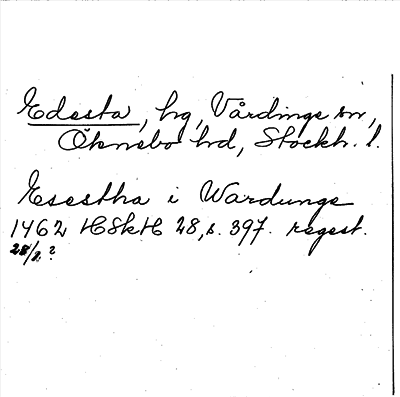 Edesta, hg, Vårdinge sn,
Öknebo hd, Stockh. l.
Esestha i Wardunge
1462 HSkH 28, s. 397. regest.
28/2 ?